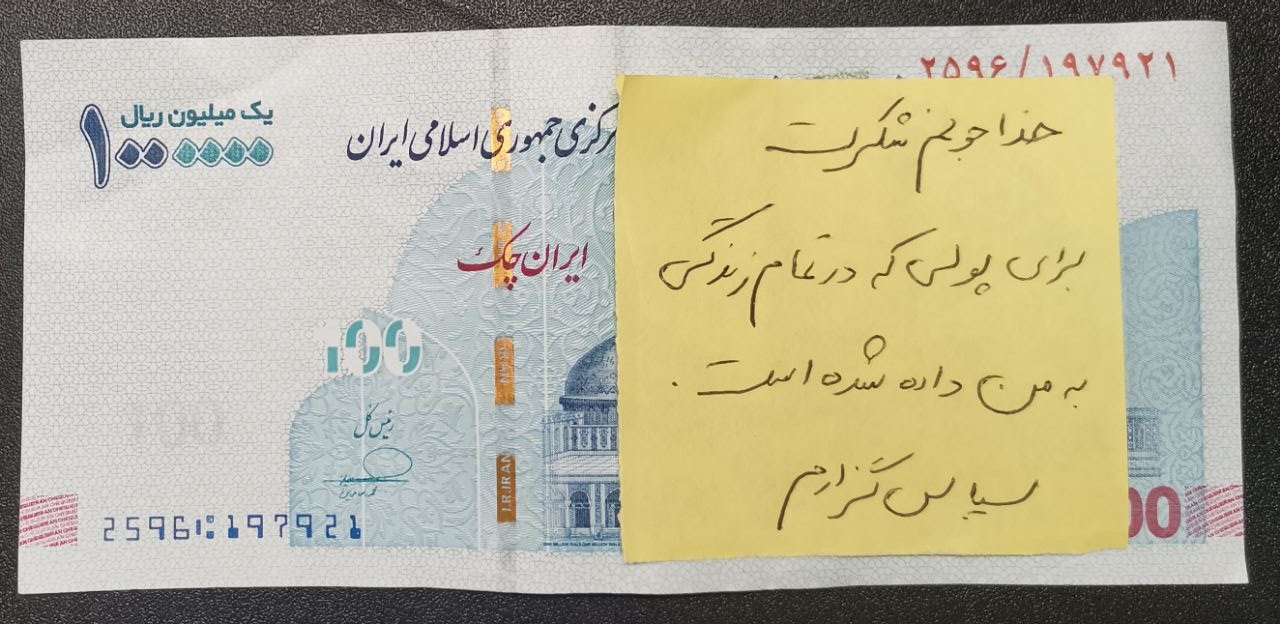 ۲۵۹۶/۱۹۷۹۲۱
یک میلیون ریال
۱۰۰۰۰۰۰
مرکزی جمهوری اسلامی ایران
ایران چک
100
رئیس کل
I.R.IRAN
2596 197921
00
خدا جونم شکرت
برای پولی که در تمام زندگی
به من داده شده است.
سپاس گزارم